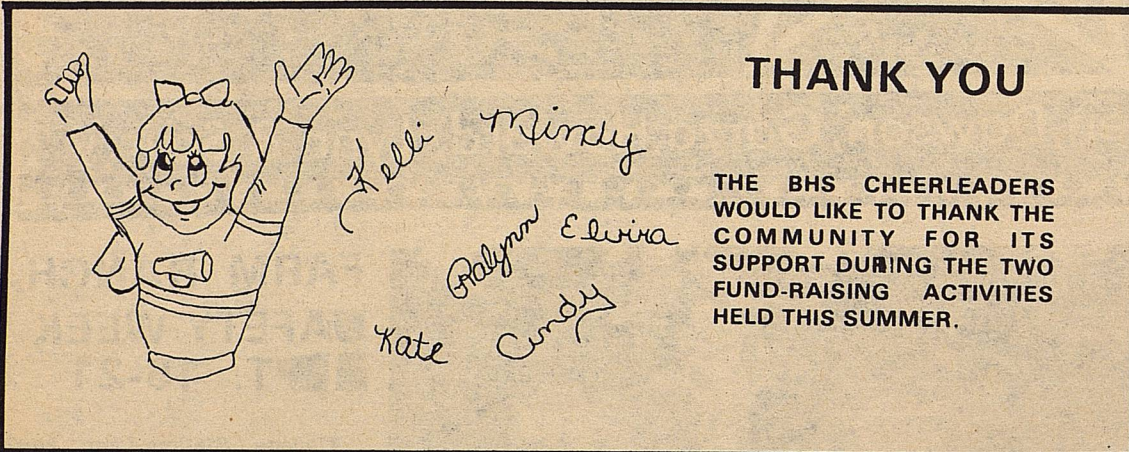 Kelli
Mindy
Ralynn
Elvira
Kate
Cindy
THANK YOU
THE BHS CHEERLEADERS
WOULD LIKE TO THANK THE
COMMUNITY FOR ITS
SUPPORT DURING THE TWO
FUND-RAISING ACTIVITIES
HELD THIS SUMMER.